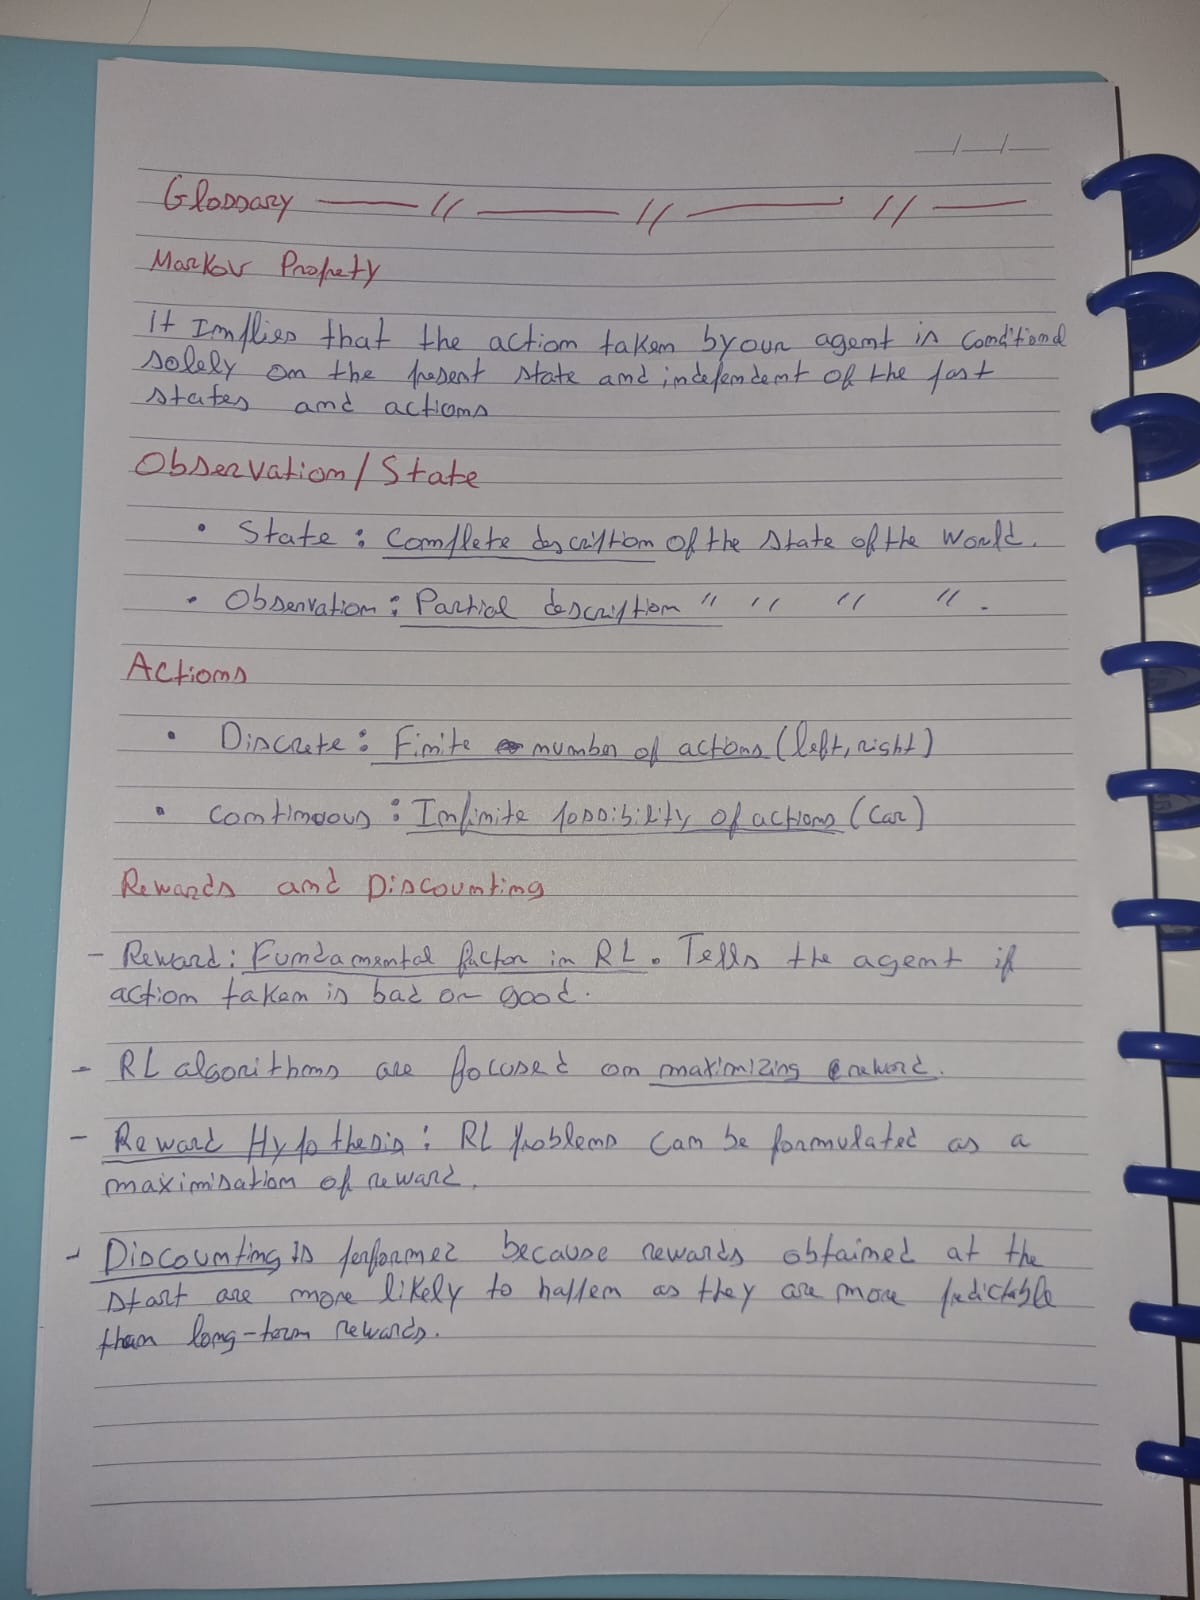 Glossary // // //
Markov Propety
It Implies that the action taken by our agent is conditional
solely on the present state and independent of the past
states and actions
Observation / State
• State : Complete description of the state of the World.
• Observation : Partial description " " " " .
Actions
• Discrete : Finite number of actions (left, right)
• Continuous : Infinite possibility of actions (Car)
Rewards and Discounting
- Reward : Fundamental factor in RL. Tells the agent if
action taken is bad or good.
- RL algorithms are focused on maximizing reward.
- Reward Hypothesis : RL problems can be formulated as a
maximisation of reward.
- Discounting is performed because rewards obtained at the
start are more likely to happen as they are more predictable
than long-term rewards.